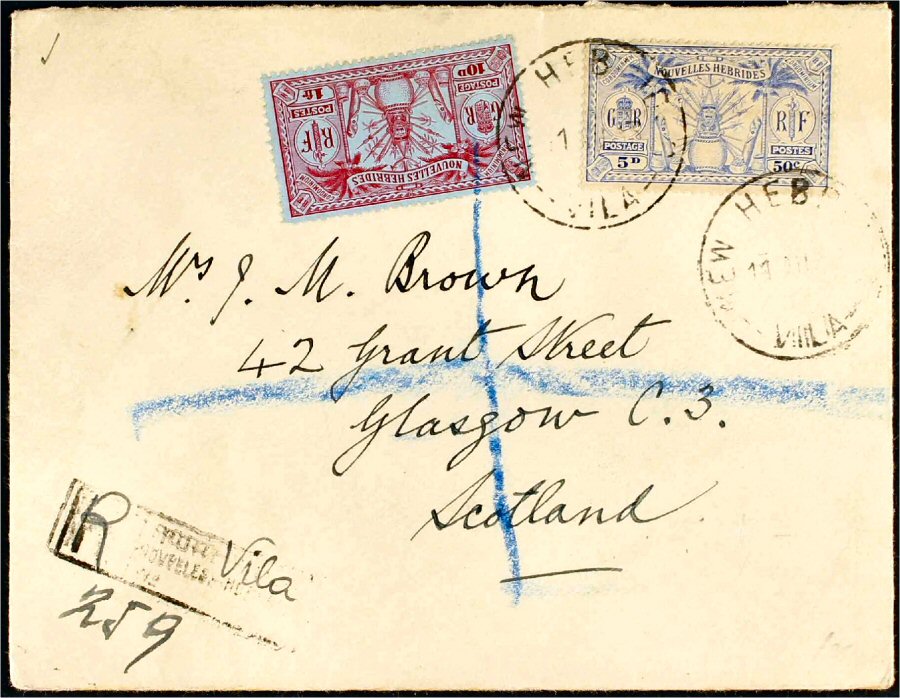 NOUVELLES HEBRIDES
G R
R F
POSTAGE
POSTES
10D
1fr
NOUVELLES HEBRIDES
G R
R F
POSTAGE
POSTES
5D
50c
NEW HEB
VILA
NEW HEB
11
VILA
Mrs J. M. Brown
42 Grant Street
Glasgow C.3.
Scotland
R
Vila
NOUVELLES
259